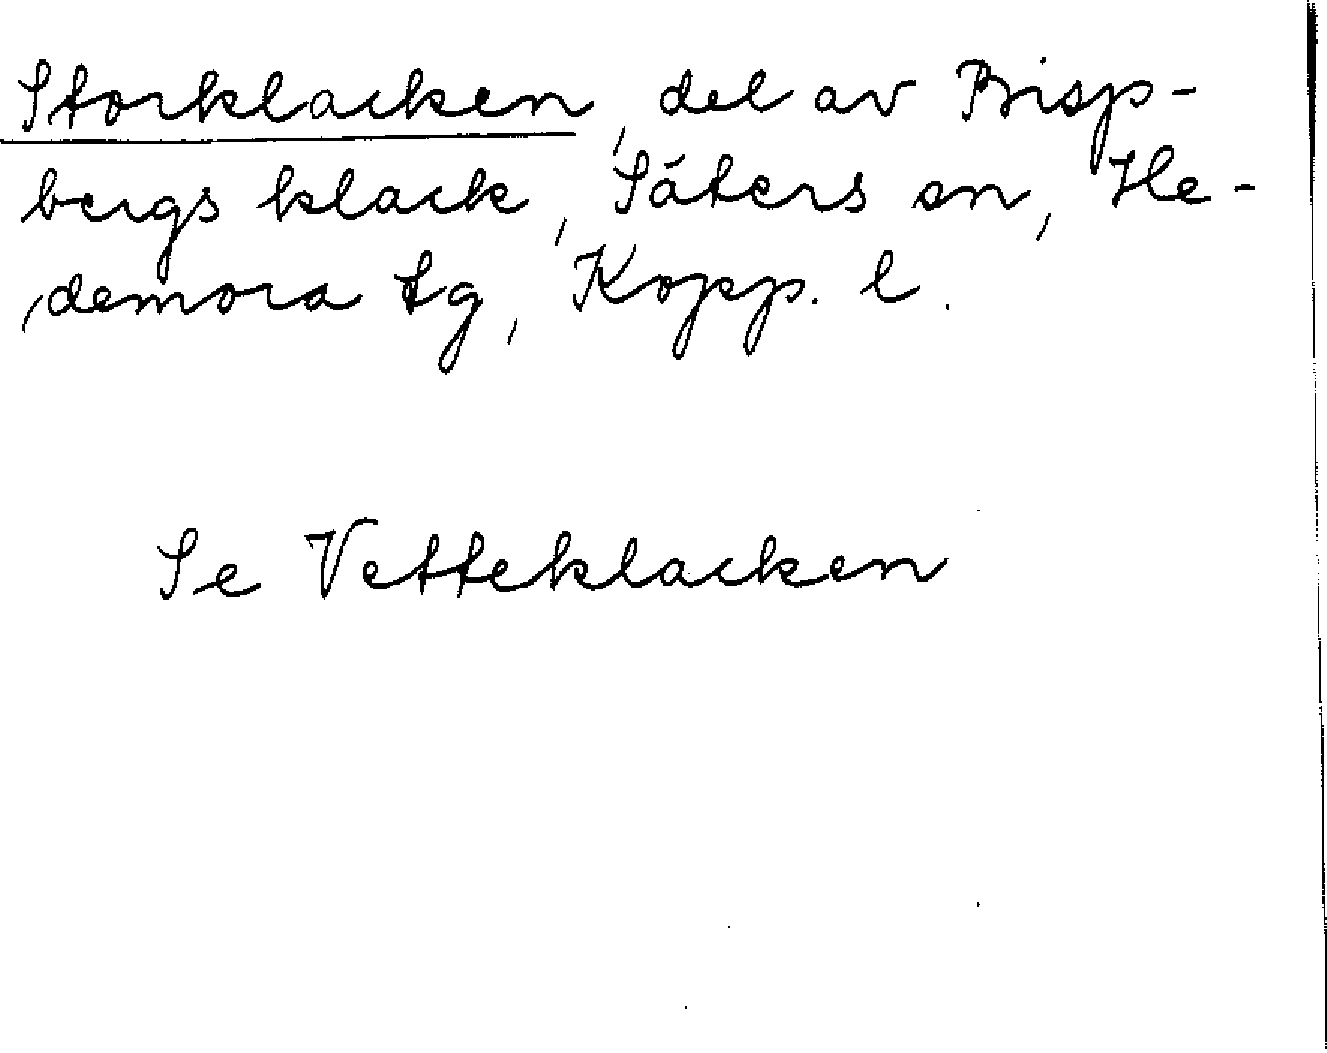 Storklacken, del av Bisp-
bergs klack, Säters sn, He-
demora tg, Kopp. l.
Se Vetteklacken